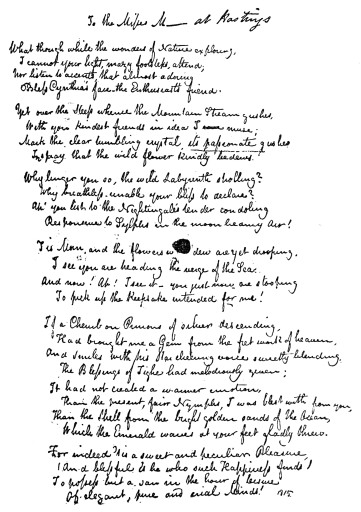 To the Misses M— at Hastings
What though while the wonders of Nature exploring,
I cannot your light, mazy footsteps, attend;
Nor listen to accents that almost adoring
Bless Cynthia's face, the Enthusiasts friend.
Yet over the Steep whence the Mountain Stream gushes,
With you kindest friends in idea I muse;
Mark the clear tumbling crystal, its passionate gushes
Its spray that the wild flower kindly bedews.
Why linger you so, the wild Labyrinth strolling?
Why breathless, unable your bliss to declare?
Ah! you list to the Nightingale's tender condoling
Responsive to Sylphs in the moon beamy air!
Tis Morn, and the flowers w dew are yet drooping,
I see you are treading the verge of the Sea:
And now! Ah! I see it – you just now are stooping
To pick up the Keepsake intended for me!
If a Cherub on Pinions of silver descending,
Had brought me a Gem from the fret work of heaven,
And smiles with his Star cheering voice sweetly blending,
The Blessings of Tighe had melodiously given;
It had not created a warmer emotion,
Than the present, fair Nymphs, I was blest with from you,
Than the shell from the bright golden sands of the Ocean,
Which the Emerald waves at your feet gladly threw.
For indeed 'tis a sweet and peculiar Pleasure,
(And blissful is he who such Happiness finds)
To possess but a span in the hour of leisure
Of elegant, pure and aerial Minds! 1815